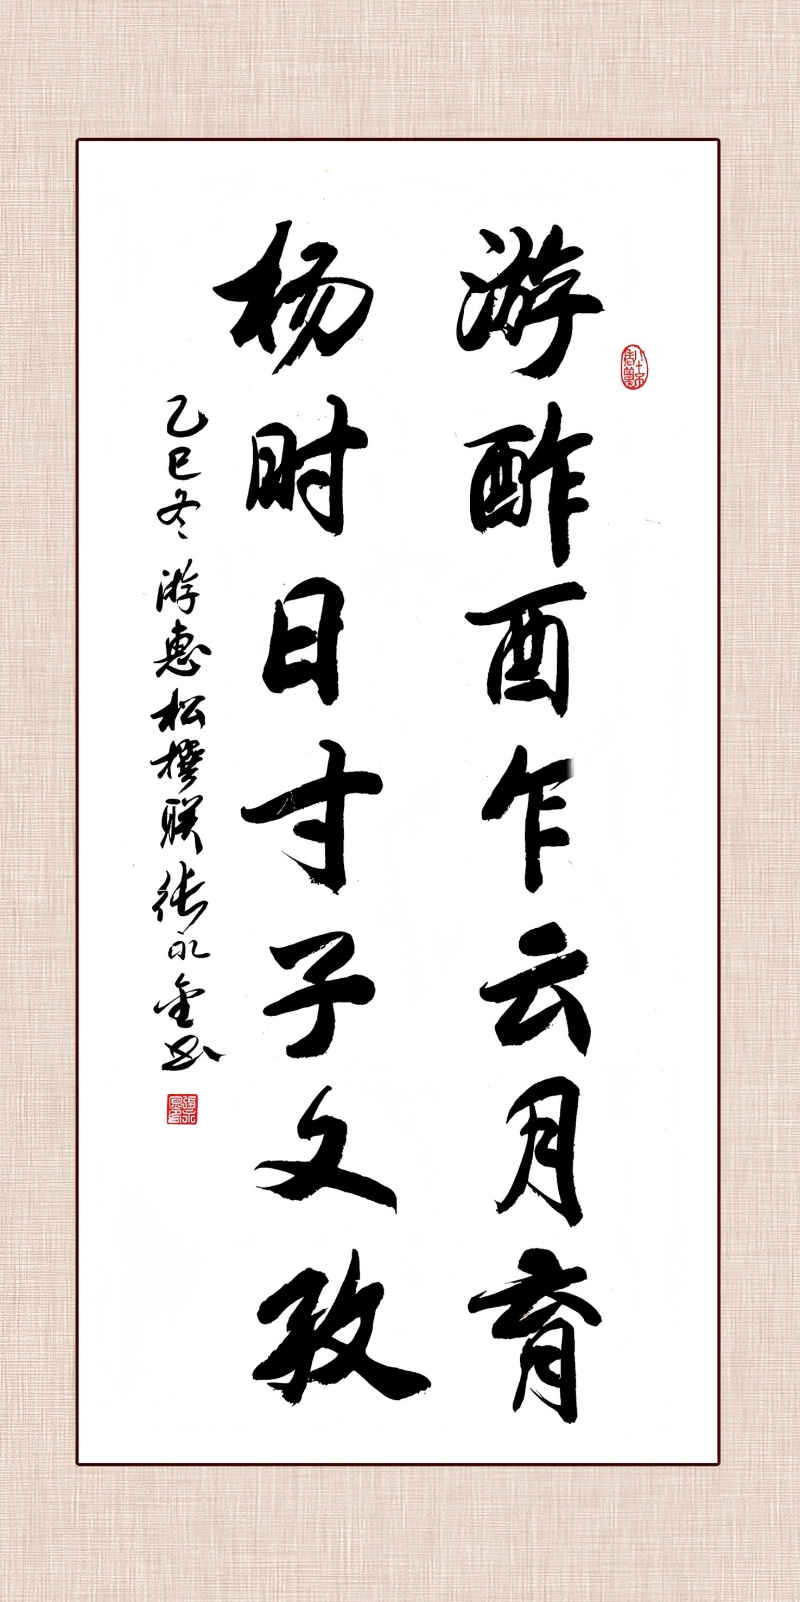 游酢酉乍云月育
杨时日寸子文孜
乙巳冬游惠松撰联张永金书